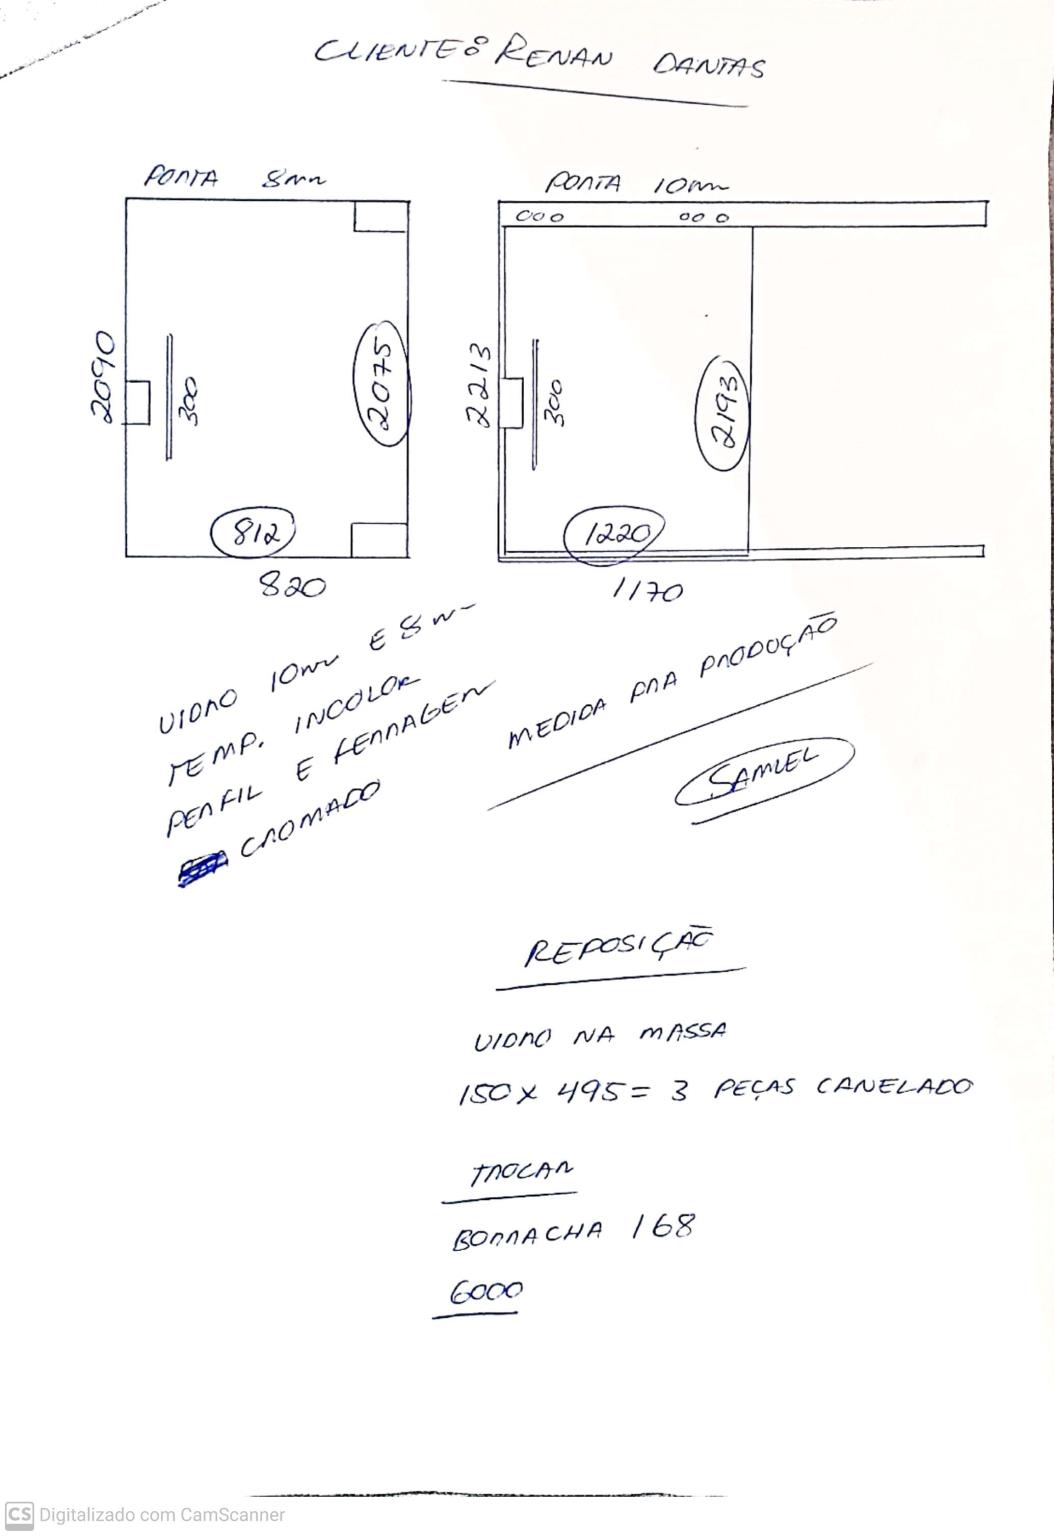 CLIENTE: RENAN DANTAS
PORTA 8mm
2090
300
2075
812
820
PORTA 10mm
2213
300
2193
1220
1170
VIDRO 10mm E 8mm
TEMP. INCOLOR
PERFIL E FERRAGEM
CROMADO
MEDIDA PRA PRODUÇÃO
SAMUEL
REPOSIÇÃO
VIDRO NA MASSA
150 X 495 = 3 PEÇAS CANELADO
TROCAR
BORRACHA 168
6000
CS Digitalizado com CamScanner